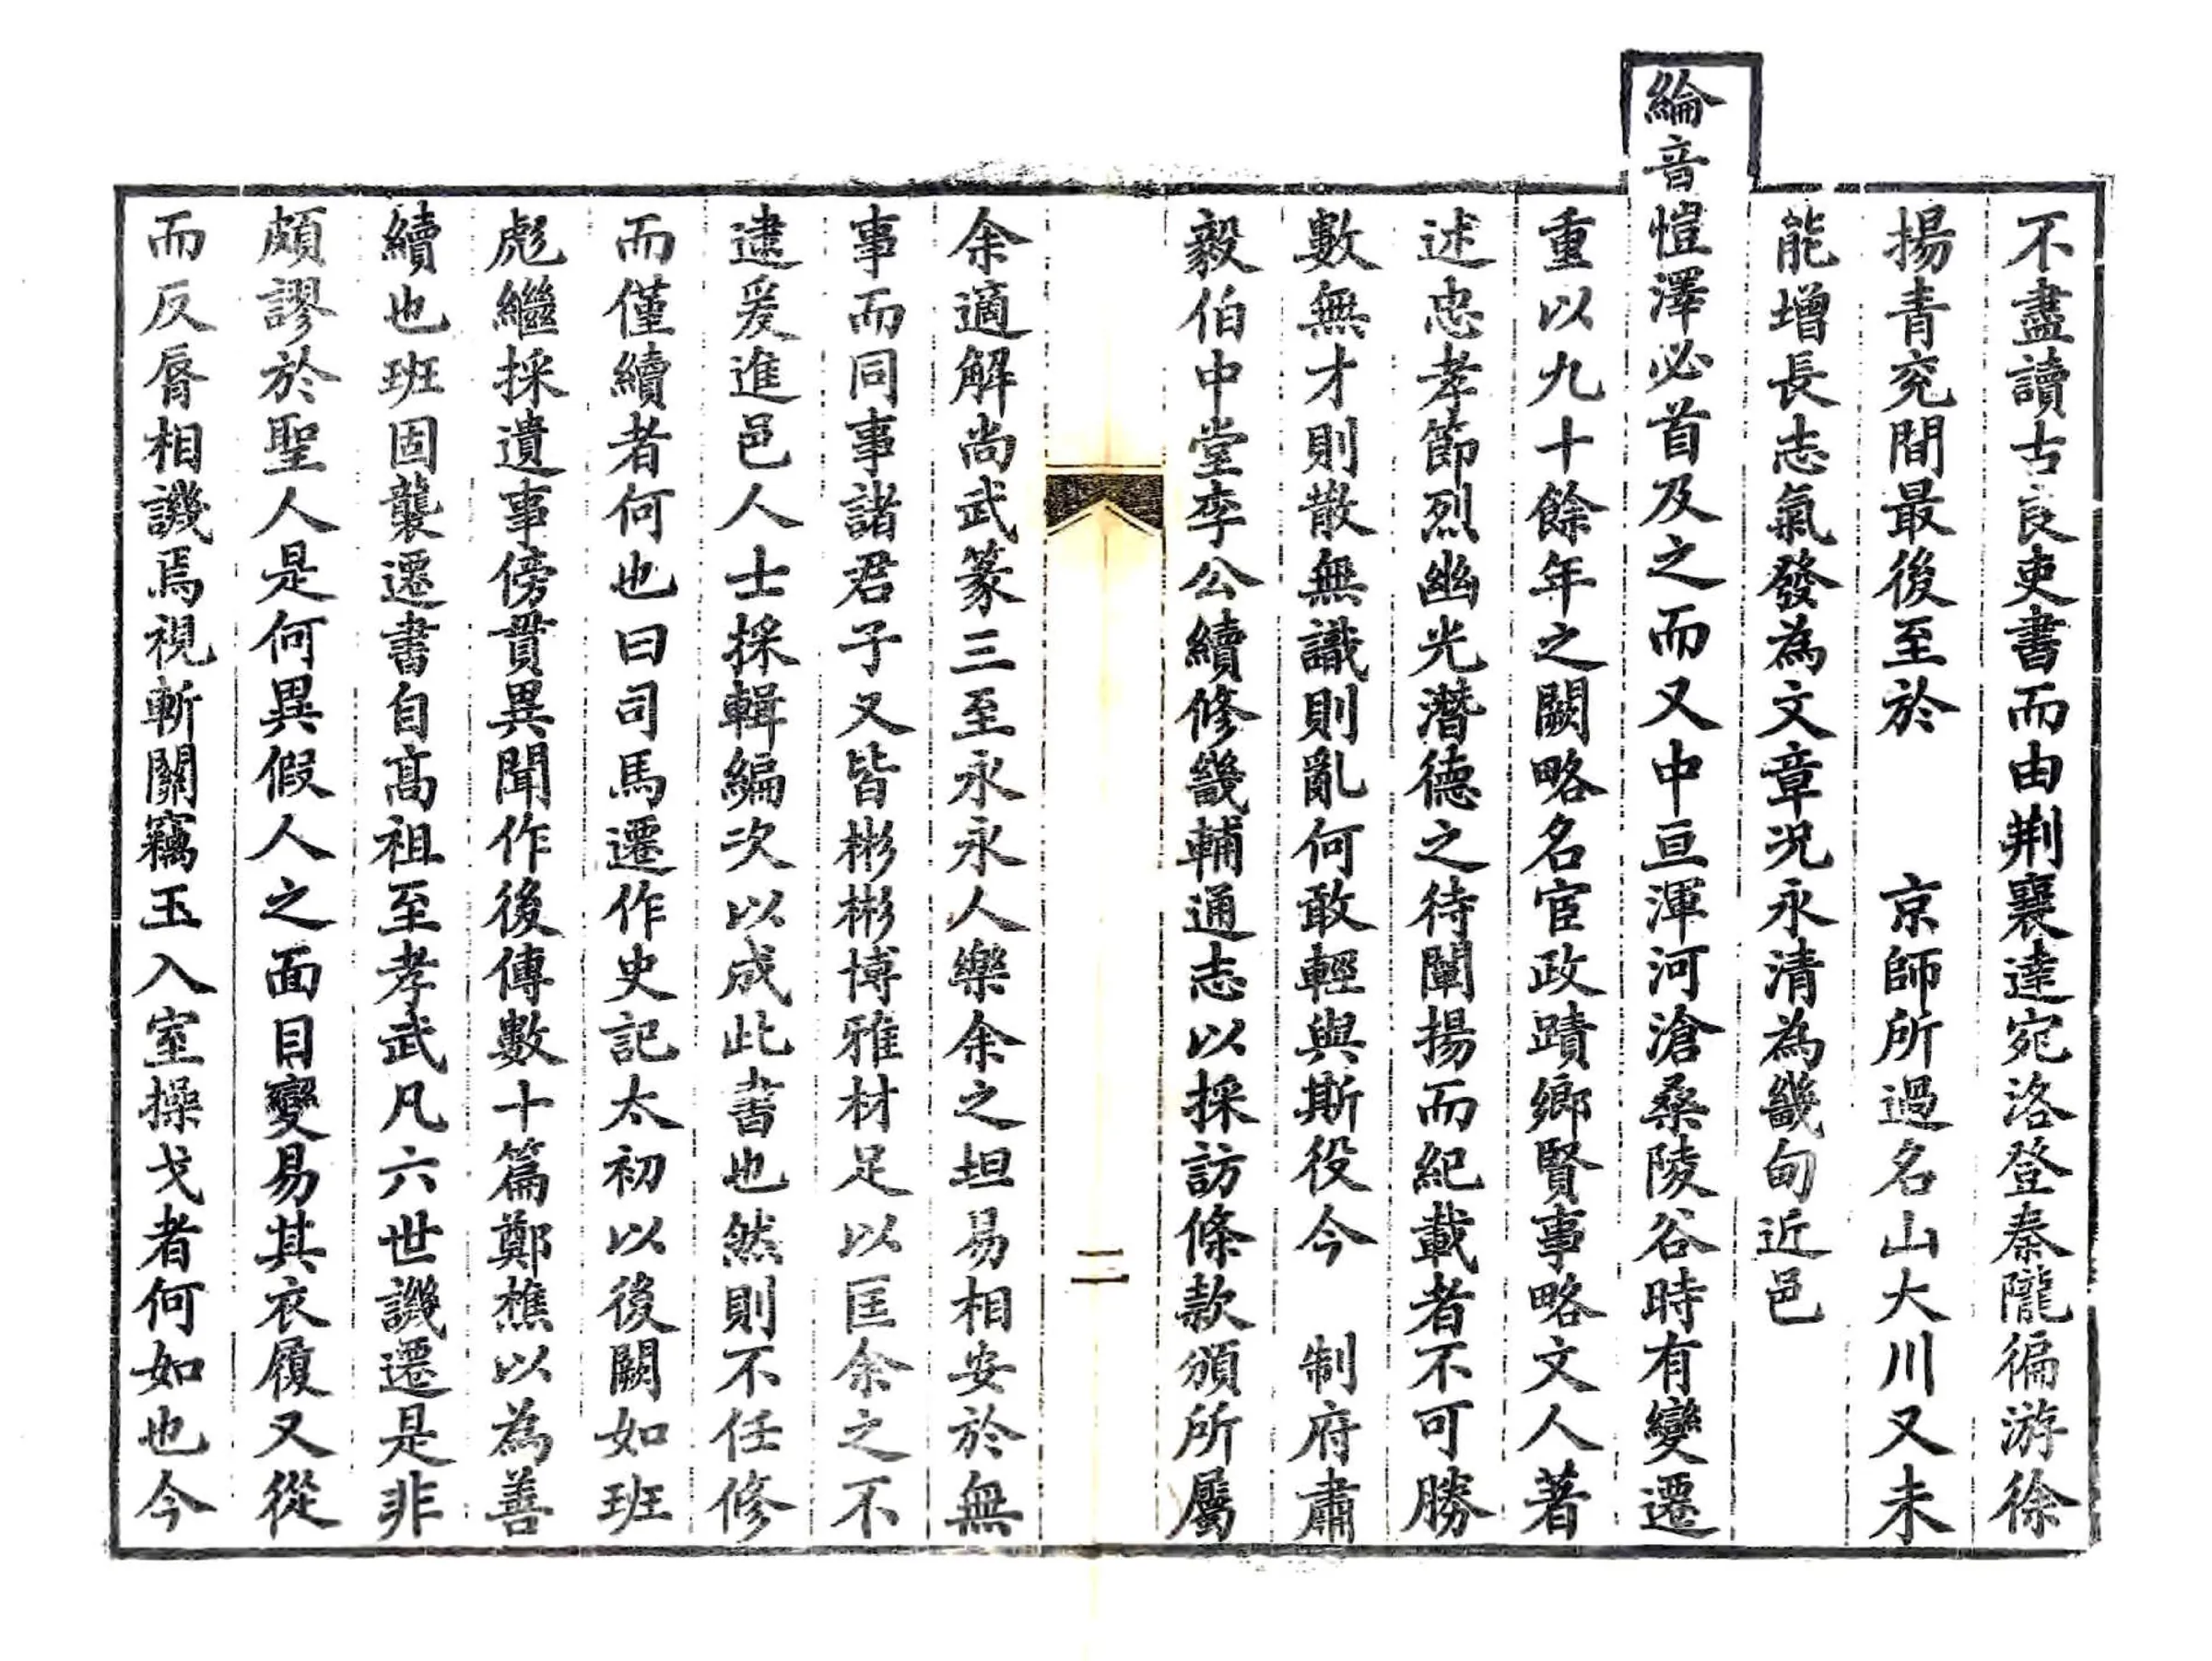 不盡讀古良吏書而由荆襄達宛洛登秦隴徧游徐
揚青兖間最後至於　京師所過名山大川又未
能增長志氣發為文章况永清為畿甸近邑
綸音愷澤必首及之而又中亘渾河滄桑陵谷時有變遷
重以九十餘年之闕略名宦政蹟鄉賢事略文人著
述忠孝節烈幽光潛德之待闡揚而紀載者不可勝
數無才則散無識則亂何敢輕與斯役今　制府肅
毅伯中堂李公續修畿輔通志以採訪條款頒所屬
二
余適解尚武篆三至永永人樂余之坦易相安於無
事而同事諸君子又皆彬彬博雅材足以匡余之不
逮爰進邑人士採輯編次以成此書也然則不任修
而僅續者何也曰司馬遷作史記太初以後闕如班
彪繼採遺事傍貫異聞作後傳數十篇鄭樵以為善
續也班固襲遷書自髙祖至孝武凡六世譏遷是非
頗謬於聖人是何異假人之面目變易其衣履又從
而反脣相譏焉視斬關竊玉入室操戈者何如也今